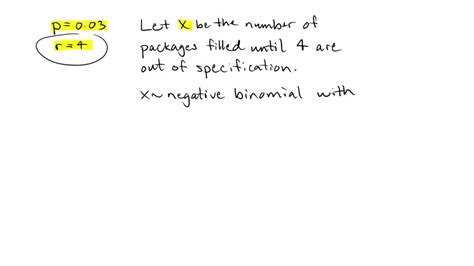 p=0.03
r=4
Let X be the number of
packages filled until 4 are
out of specification.
X~negative binomial with